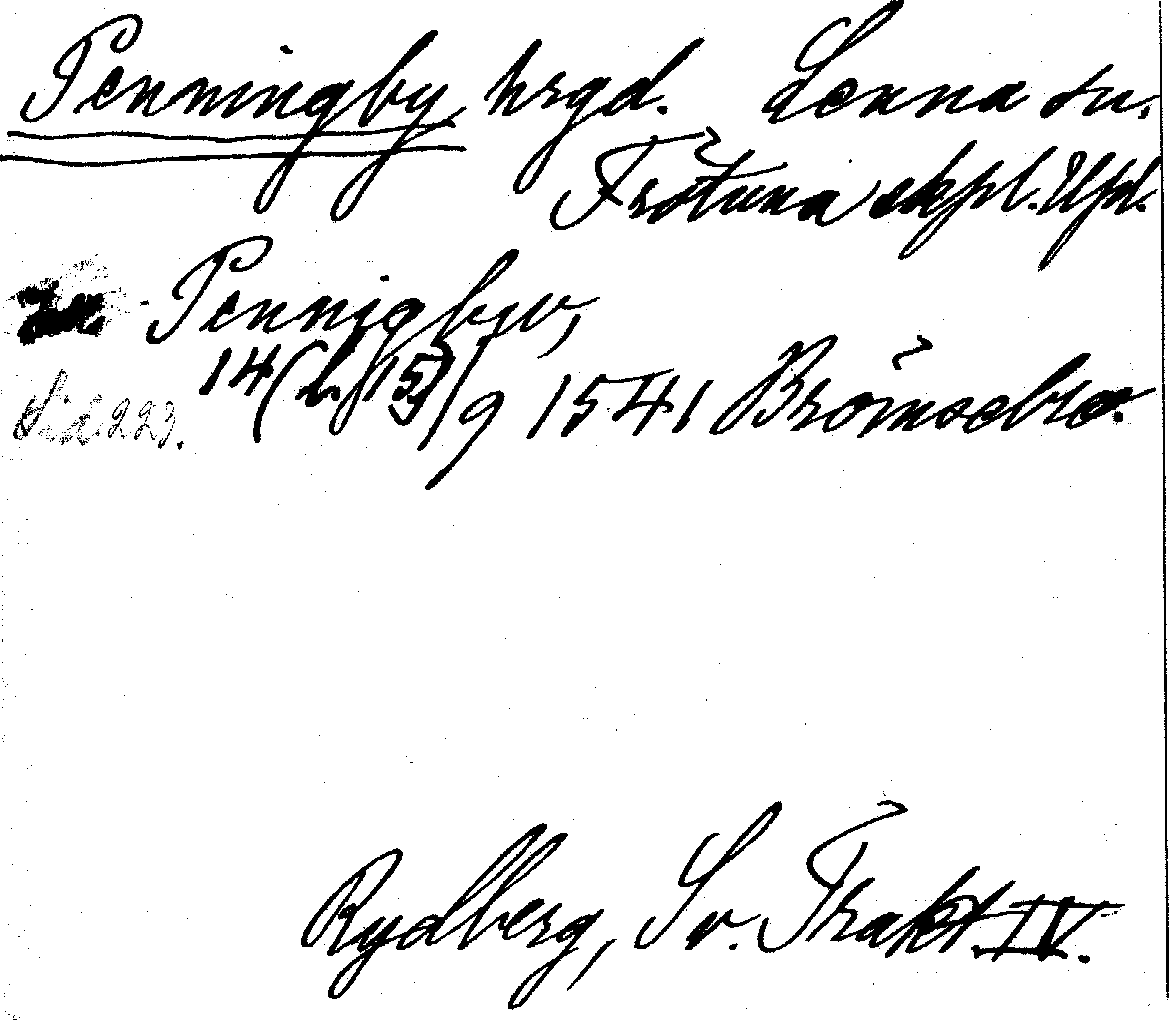 Penningby, hrgd. Lenna sn.
Frötuna skpl. Upl.
Pennigbyv,
14 (b. 15)/9 1541 Brömsebro.
Sid. 223.
Rydberg, Sv. Trakt. IV.